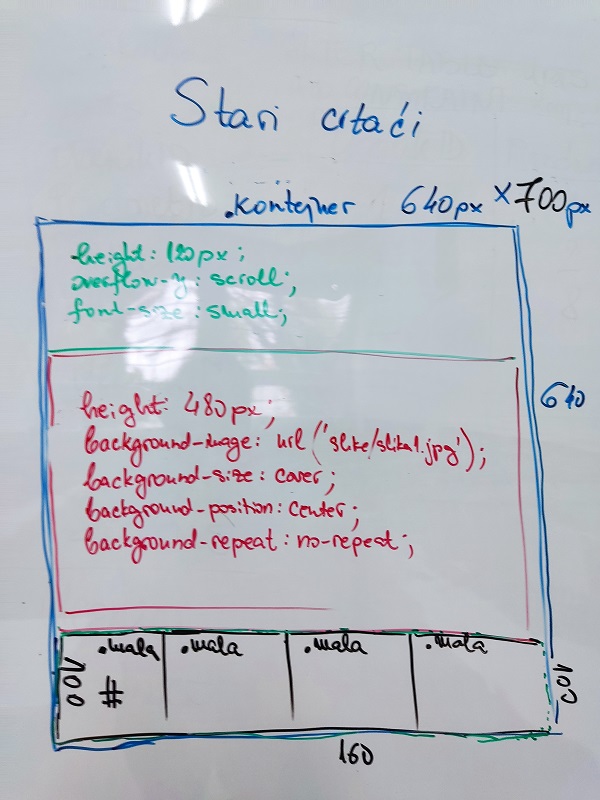 Stari crtaći
.kontejner 640px x 700px
height: 120px;
overflow-y: scroll;
font-size: small;
640
height: 480px;
background-image: url('slike/slika1.jpg');
background-size: cover;
background-position: center;
background-repeat: no-repeat;
.mala .mala .mala .mala
100 # 100
160